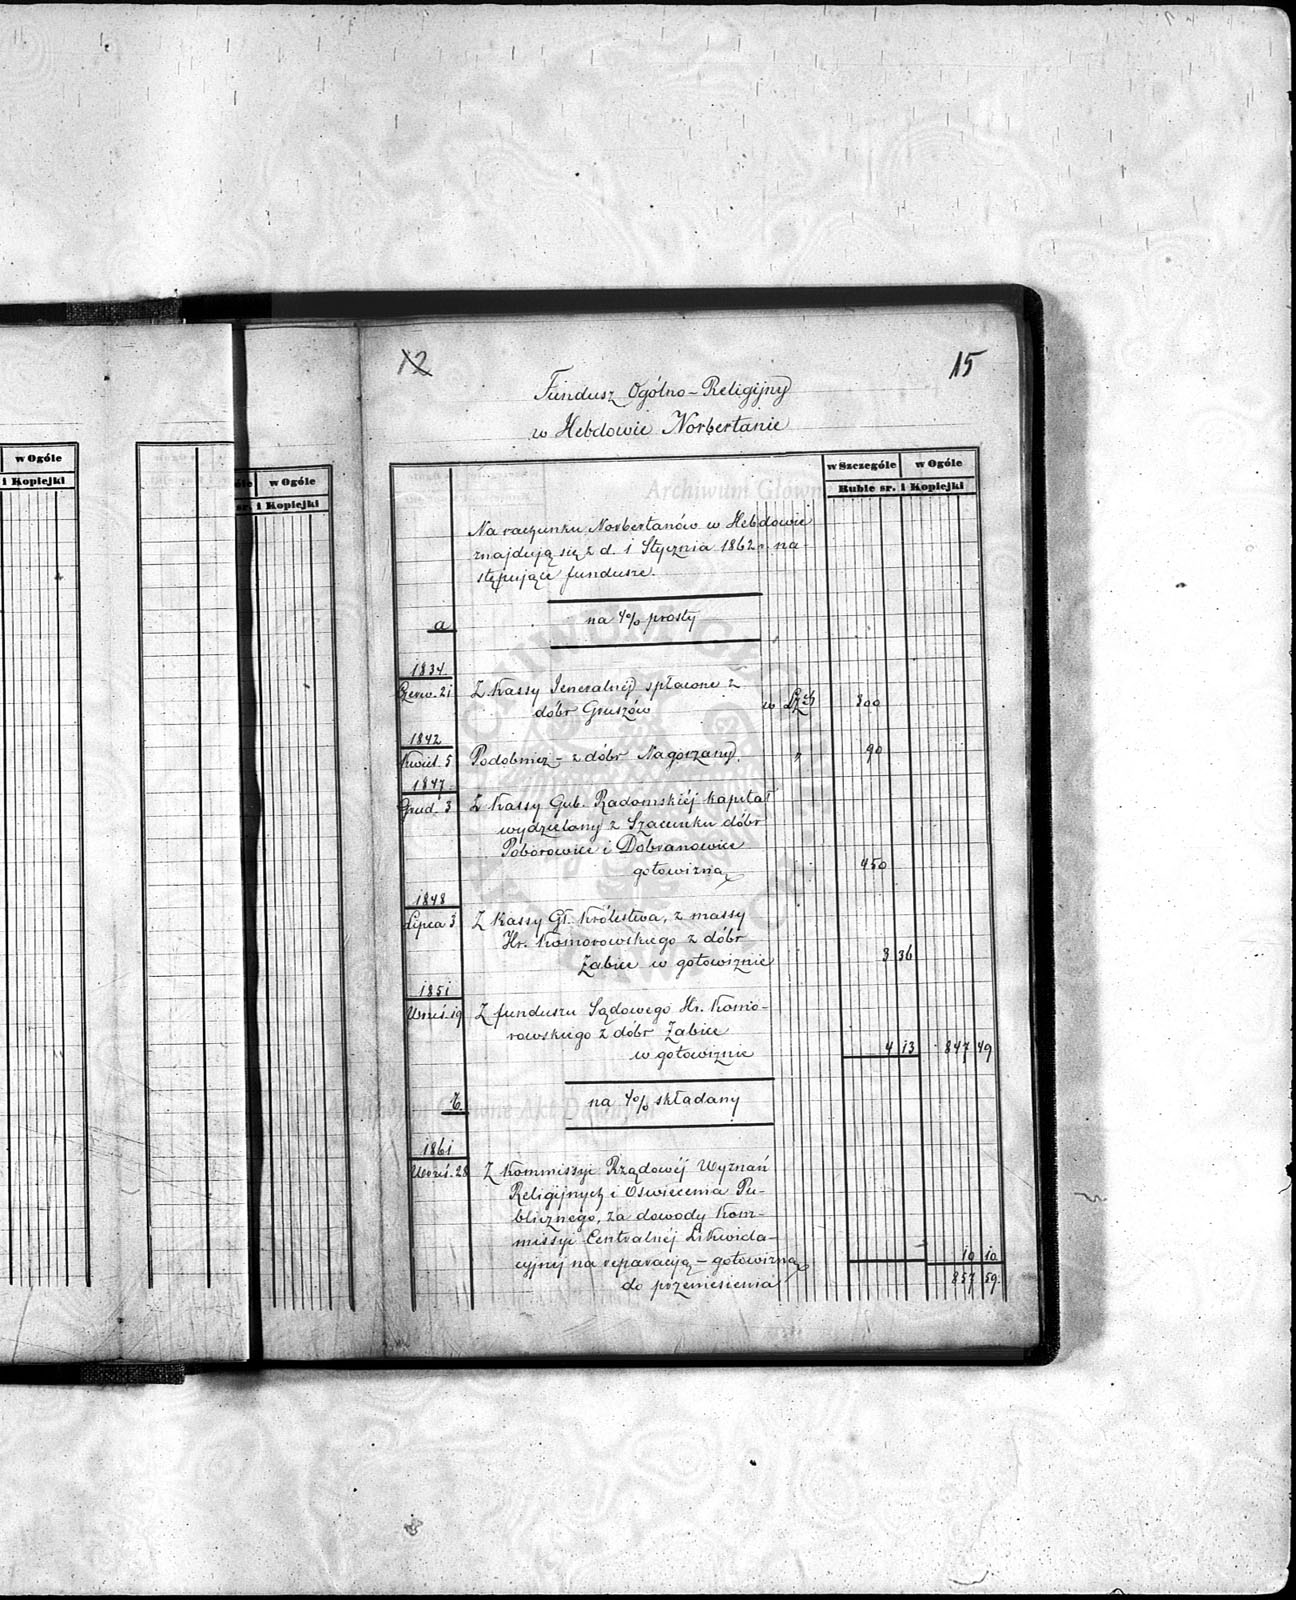 12
15
Fundusz Ogólno-Religijny
w Hebdowie Norbertanie
w Ogóle
i Kopiejki
w Ogóle
sr. i Kopiejki
w Szczególe w Ogóle
Ruble sr. i Kopiejki
Archiwum Główne
Na rachunku Norbertanów w Hebdowie
znajdują się z d. 1 Stycznia 1862 r. na-
stępujące fundusze.
a na 4% prosty
1834
Czerw. 21 Z Kassy Jeneralnéj spłacone z
dóbr Gruszów w 300
1842
Kwiet. 5 Podobnież - z dóbr Nagorzany. " 90
1847.
Grud. 3 Z Kassy Gub. Radomskiéj kapitał
wydzielany z Szacunku dóbr
Poborowice i Dobranowice
gotowizną 450
1848
Lipca 3 Z Kassy Gł. Królestwa, z massy
Hr. Komorowskiego z dóbr
Żabiec w gotowiznie 3 36
1851
Wrześ. 19 Z funduszu Sądowego Hr. Komo-
rowskiego z dóbr Żabiec
w gotowiznie 4 13 847 49
b. na 4% składany
Archiwum Główne Akt Dawnych
1861
Wrześ. 28 Z Kommissyi Rządowéj Wyznań
Religijnych i Oświecenia Pu-
blicznego, za dowody Kom-
missyi Centralnéj Likwida-
cyjnéj na reparacyją - gotowizną 10 10
do przeniesienia 857 59.